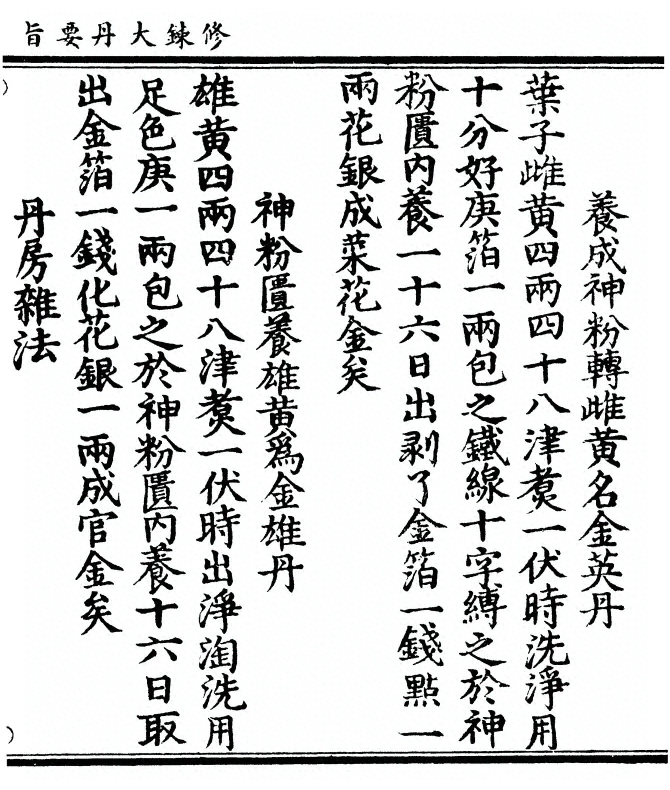 修鍊大丹要旨
養成神粉轉雌黃名金英丹
葉子雌黃四兩四十八津煑一伏時洗淨用
十分好庚箔一兩包之鐵線十字縛之於神
粉匱內養一十六日出剥了金箔一錢點一
兩花銀成菜花金矣
神粉匱養雄黃爲金雄丹
雄黃四兩四十八津煑一伏時出淨淘洗用
足色庚一兩包之於神粉匱內養十六日取
出金箔一錢化花銀一兩成官金矣
丹房雜法